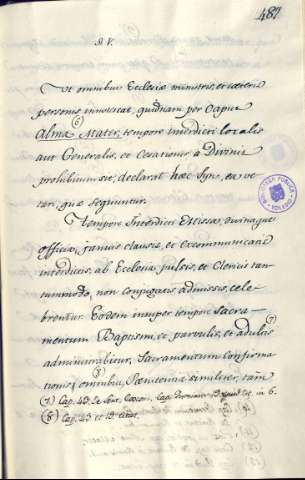 487
§. V.
Ut omnibus Ecclesiæ ministris, et cæteris
personis innotescat, quidnam per Caput
Alma Mater, tempore Interdicti localis
aut Generalis, et Cesationis à Divinis
prohibitum sit, declarat hæc Syn. ea ve-
tari, quæ sequuntur.
Tempore Interdicti Ecclesiæ, divinaque
officia, januis clausis, et Excommunicatis
interdictis, ab Ecclesia pulsis, et Clericis tan-
tummodo, non conjugatis admissis, cele-
brentur. Eodem insuper tempore Sacra-
mentum Baptismi, et parvulis, et adultis (7)
administrabitur, Sacramentum Confirma-
tionis (8) omnibus, Pœnitentiæ similiter, tam
(7) Cap. 43. de Sent. Excom. Cap. in 6.
(8) Cap. 43. et 19. citat.
BIBLIOTECA PUBLICA
TOLEDO